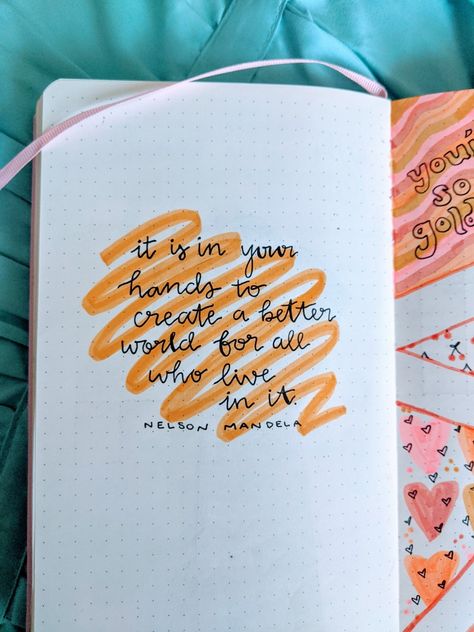 it is in your
hands to
create a better
world for all
who live
in it.
NELSON MANDELA
you're
so
gold